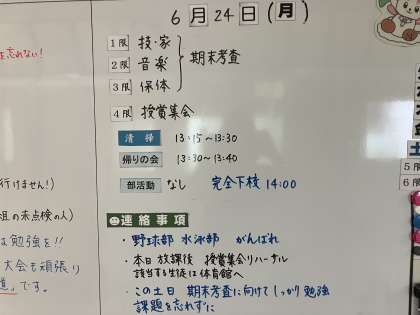 6月24日(月)
を忘れない!
1限 技・家
2限 音楽
3限 保体
期末考査
4限 授賞集会
清掃 13:15～13:30
帰りの会 13:30～13:40
部活動 なし 完全下校 14:00
連絡事項
・野球部 水泳部 がんばれ
・本日 放課後 授賞集会リハーサル
該当する生徒は体育館へ
・この土日 期末考査に向けてしっかり勉強
課題を忘れずに
行けません!)
組の未点検の人)
は勉強を!!
大会も頑張り
」です。
土
5限
6限